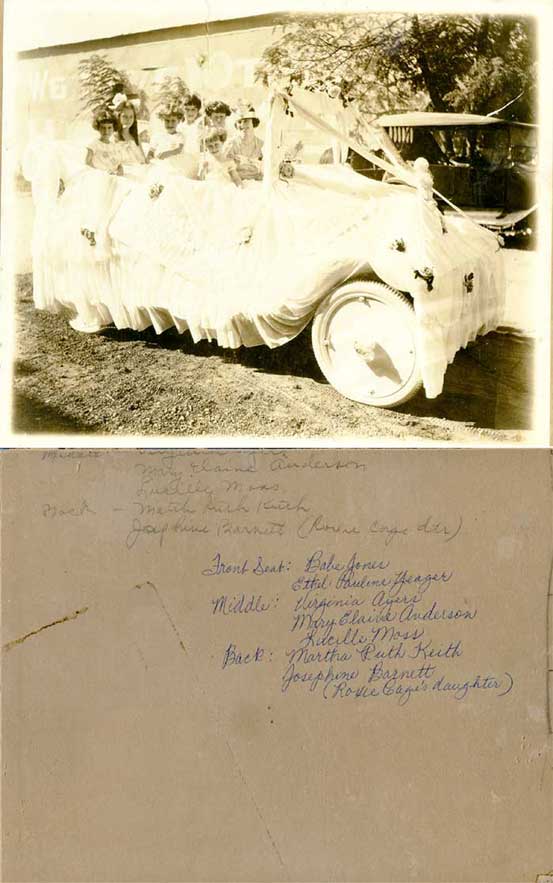 WE
Middle - Virginia Ayers
Mary Elaine Anderson
Lucille Moss
Back - Martha Ruth Keith
Josephine Barnett (Rosie Cage dtr)
Front Seat: Babe Jones
Ethel Pauline Yeager
Middle: Virginia Ayers
Mary Elaine Anderson
Lucille Moss
Back: Martha Ruth Keith
Josephine Barnett
(Rosie Cage's daughter)